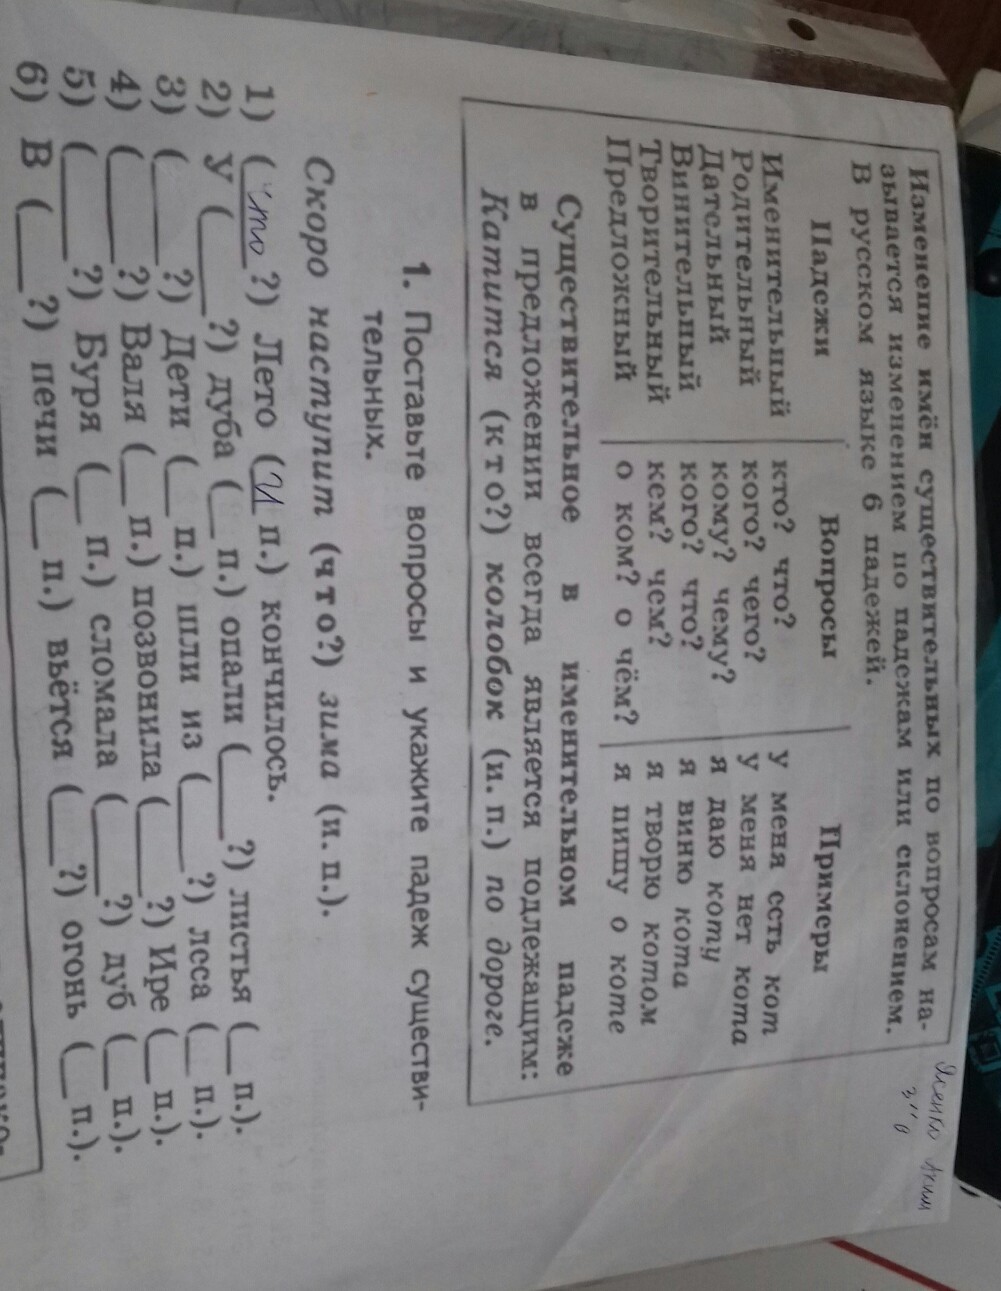 Изменение имён существительных по вопросам на-
зывается изменением по падежам или склонением.
В русском языке 6 падежей.
Падежи Вопросы Примеры
Именительный кто? что? у меня есть кот
Родительный кого? чего? у меня нет кота
Дательный кому? чему? я даю коту
Винительный кого? что? я виню кота
Творительный кем? чем? я творю котом
Предложный о ком? о чём? я пишу о коте
Существительное в именительном падеже
в предложении всегда является подлежащим:
Катится (кто?) колобок (и. п.) по дороге.
1. Поставьте вопросы и укажите падеж существи-
тельных.
Скоро наступит (что?) зима (и. п.).
1) (что?) Лето (И п.) кончилось.
2) У (____?) дуба (__ п.) опали (____?) листья (__ п.).
3) (____?) Дети (__ п.) шли из (____?) леса (__ п.).
4) (____?) Валя (__ п.) позвонила (____?) Ире (__ п.).
5) (____?) Буря (__ п.) сломала (____?) дуб (__ п.).
6) В (____?) печи (__ п.) вьётся (____?) огонь (__ п.).